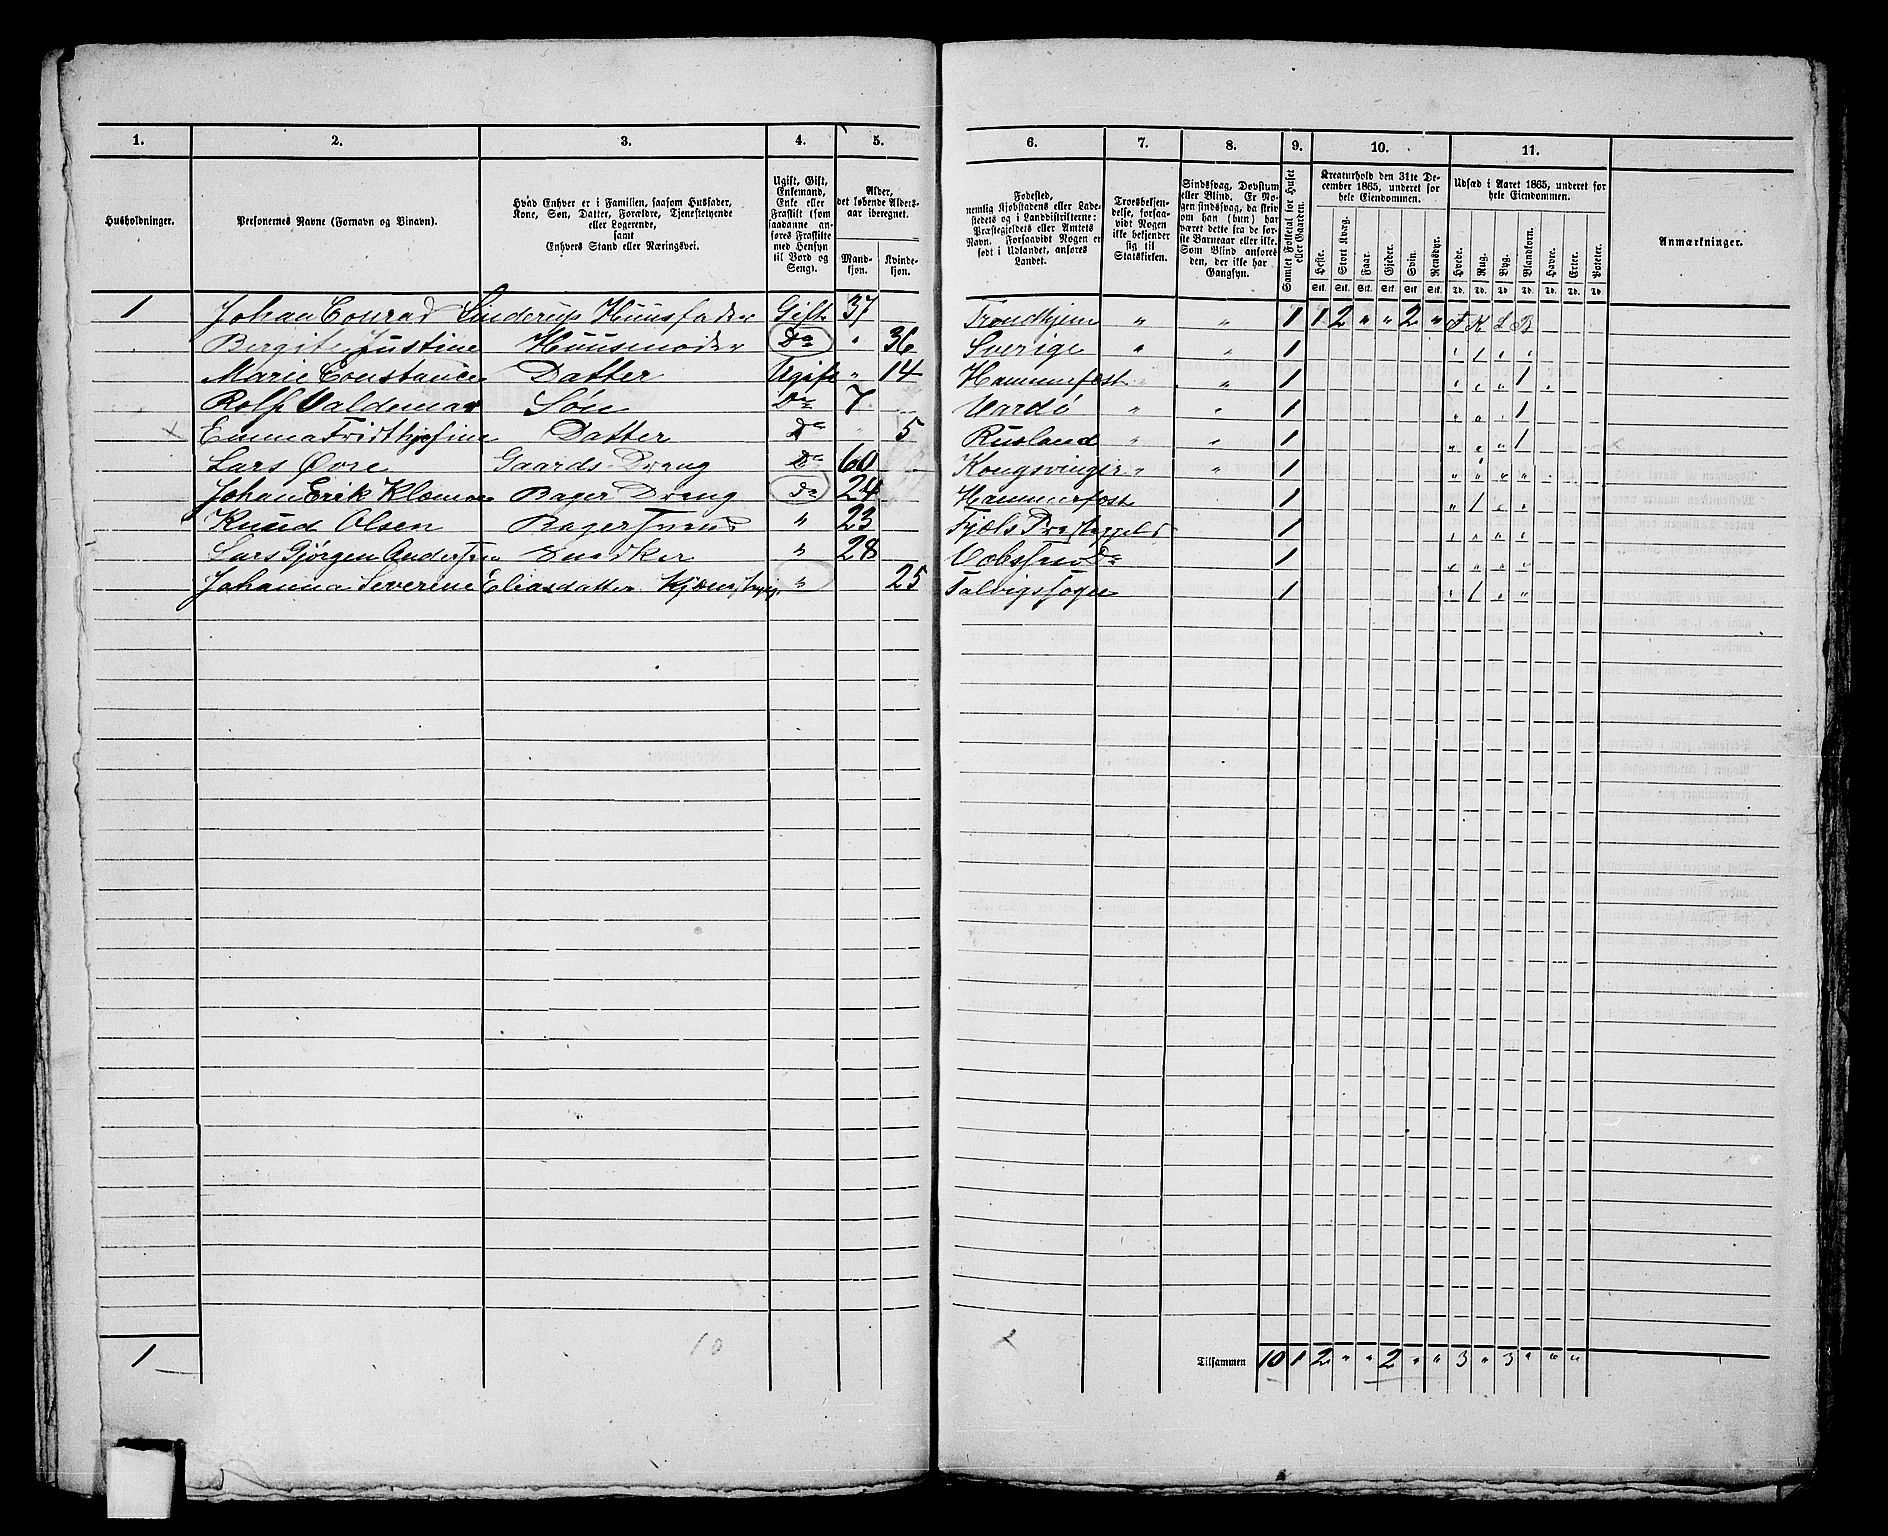 1. 2. 3. 4. 5. 6. 7. 8. 9. 10. 11.
Husholdninger.
Personernes Navne (Fornavn og Binavn).
Hvad Enhver er i Familien, saasom Husfader,
Kone, Søn, Datter, Forældre, Tjenestetyende
eller Logerende,
samt
Enhvers Stand eller Næringsvei.
Ugift, Gift,
Enkemand,
Enke eller
Fraskilt (som
saadanne an-
føres Fraskilte
med Hensyn
til Bord og
Seng).
Alder,
det løbende Alders-
aar iberegnet.
Mand-
kjøn.
Kvinde-
kjøn.
Fødested,
nemlig Kjøbstadens eller Lade-
stedets og i Landdistrikterne:
Præstegjeldets eller Amtets
Navn. Forsaavidt Nogen er
født i Udlandet, anføres
Landet.
Troesbekjen-
delse, forsaa-
vidt Nogen
ikke bekjender
sig til
Statskirken.
Sindssvag, Døvstum
eller Blind. Er No-
gen sindssvag, da skriv
om han (hun) har
været dette fra de før-
ste Barneaar eller ikke.
Som Blind anføres
den, der ikke har
Gangsyn.
Samlet Folketal for Huset
eller Gaarden.
Kreaturhold den 31te De-
cember 1865, underet for
hele Eiendommen.
Heste. Stort Kvæg. Faar. Gjeder. Svin. Rensdyr.
Stk. Stk. Stk. Stk. Stk. Stk.
Udsæd i Aaret 1865, underet for
hele Eiendommen.
Hvede. Rug. Byg. Blandkorn. Havre. Erter. Poteter.
Td. Td. Td. Td. Td. Td. Td.
Anmærkninger.
1 Johan Conrad Sinderup Huusfader Gift 37 Trondhjem " " 1 1 2 " " 2 "
Bergite Justine Huusmoder Do " 36 Sverige " " 1
Marie Constance Datter Ugift " 14 Hammerfest " " 1
Rolf Valdemar Søn Do 7 Vardö " " 1
Emma Fridthjofine Datter Do " 5 Rusland " " 1
Lars Øvre Gaards Dreng Do 60 Kongsvinger " " 1
Johan Erik Bager Dreng Do 24 Hammerfest 1
Knud Olsen Bager " 23 1
Lars Gjørgen Andersen Snedker " 28 1
Johanna Severine Eliasdatter " 25 Talvigs Sogn 1
1 10 Tilsammen 10 1 2 " " 2 " " 3 " 3 " " "